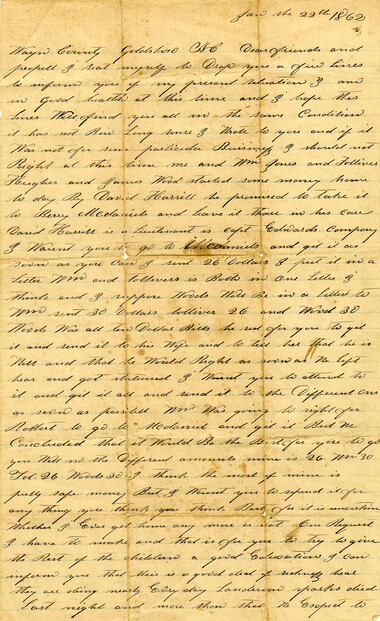 Jan the 22th 1862
Wayn County Goldsboro N C Dear friends and
peopell I seat myself to Drop you a few lines
to inform you of my present situation I am
in Good health at this time and I hope this
lines Will find you all in the same Condition
it has not Bin long since I Wrote to you and if it
Was not for som particular Buisiness I should not
Right at this time me and Wm Jones and Tolliver
Hughes and James Wood started some money home
to day By David Harrill he promised to take it
to Berry Mcdaniels and leave it thare in his care
David Harrill is a lieutenant in Capt Edwards Company
I Waient you to go to Mcdaniels and get it as
soon as you can I send 26 Dollars I put it in a
Letter Wm and tollivers is Both in One Letter I
think and I suppose Woods Will Be in a letter to
Wm sent 30 Dollars tolliver 26 and Wood 30
Woods Was all ten Dollar Bills he sed for you to git
it and send it to his Wife and to tell her that he is
Well and that he Would Right as soon as We left
hear and got stationed I Want you to attend to
it and git it all and send it to the Different Ones
as soon as possibell Wm Was going to right for
Robbert to go to Mcdaniel and git it But We
Concluded that it Would Be the Best for you to go
you Will no the Different amounts mine is 26 Wm 30
Tol 26 Woods 30 I think the most of mine is
pretty safe money But I Want you to spend it for
any thing you think you think Best for it is uncertin
Whether I Ever get home any more or not One Request
I have to make and That is for you to try to give
the Rest of the children a good Education I can
inform you that thire is a good deal of sickness hear
they are dieing nearly Every day Landerim sparks died
Last night and more than that We Expect to